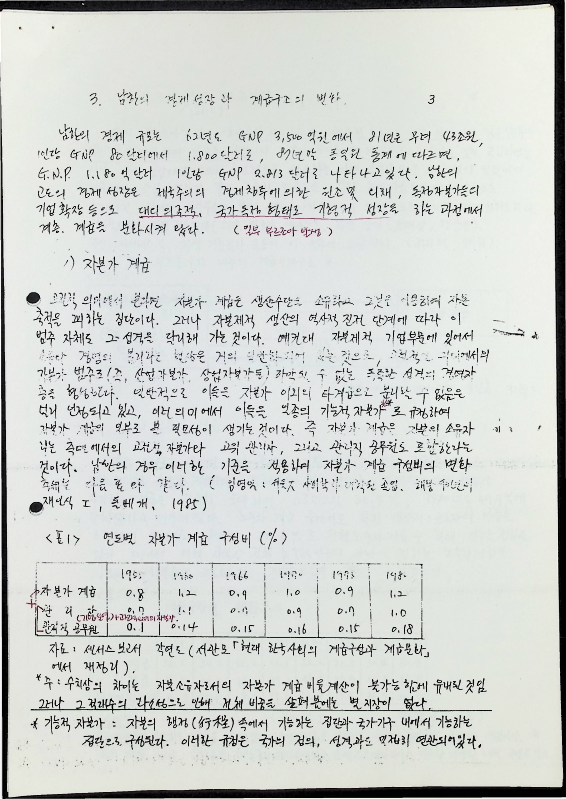 3. 남한의 경제성장과 계급구조의 변화. 3
남한의 경제 규모는 62년도 GNP 3,500억원에서 81년은 무려 43조원,
1인당 GNP 80달러에서 1.800달러로, 87년말 통계에 따르면,
G.N.P 1.180억달러 1인당 GNP 2.813달러로 나타나고 있다. 남한의
고도의 경제성장은 제국주의의 경제 원조 및 독점자본가들의
기업확장 등으로 대외의존적, 국가독점형태로 기형적 성장을 하는 과정에서
계속. 계급을 분화시켜 왔다. (일부 부르조아 )
1) 자본가 계급
고전적 의미에서 본다면 자본가 계급은 생산수단을 소유하고 그것을 이용하여 자본
축적을 꾀하는 집단이다. 그러나 자본제적 생산의 역사적 진전 단계에 따라 이
범주 자체도 그 성격을 달리해 가는 것이다. 예컨대 자본제적 기업부문에 있어서
경영의 분리라는 현상은 거의 것으로,
자본가 범주로(즉, 산업자본가, 상업자본가등) 파악될 수 없는 독특한 성격의 경영자
층을 형성한다. 일반적으로 이들을 자본가 이외의 타계급으로 분리할 수 없음은
널리 인정되고 있고, 이런 의미에서 이들을 일종의 기능적 자본가*로 규정하여
자본가 계급의 일부로 볼 필요성이 생기는 것이다. 즉 자본가 계급은 자본의 소유자
라는 측면에서의 고전적 자본가와 고위 관리자, 그리고 관리직 공무원도 포함한다는
것이다. 남한의 경우 이러한 기준을 적용하여 자본가 계급 구성비의 변화
추세는 다음 표와 같다. ( 김영모 : 해방
재인식 I, 돌베개, 1985)
<표1> 연도별 자본가 계급 구성비 (%)
1955 1960 1966 1970 1975 1980
자본가 계급 0.8 1.2 0.9 1.0 0.9 1.2
관리자 0.7 1.1 0.9 0.7 1.0
관리직 공무원 0.1 0.14 0.15 0.16 0.15 0.18
자료 : 센서스보고서 각연도 (서관모「현대 한국사회의 계급구성과 계급분화」
에서 재정리).
*주 : 수치상의 차이는 자본소유자로서의 자본가 계급 비율계산이 불가능함에 유래된 것임
그러나 그 절대수의 과소성으로 인해 전체 비중을 살펴봄에는 별지장이 없다.
* 기능적 자본가 : 자본의 행정(行程) 속에서 기능하는 집단과 국가기구 내에서 기능하는
집단으로 구성된다. 이러한 규정은 국가의 정의, 성격과도 밀접히 연관되어있다.